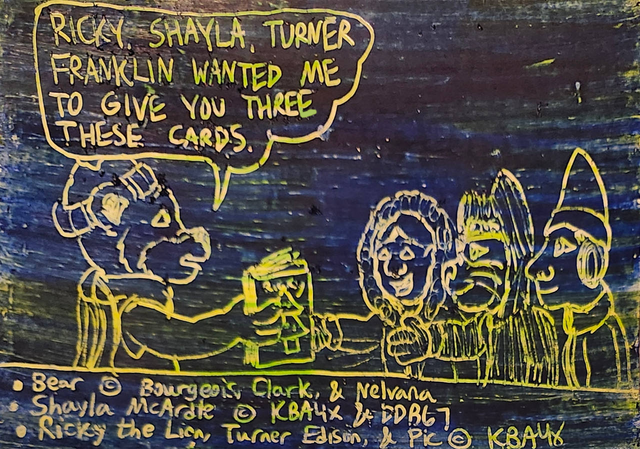 RICKY, SHAYLA, TURNER
FRANKLIN WANTED ME
TO GIVE YOU THREE
THESE CARDS.
• Bear © Bourgeois, Clark, & Nelvana
• Shayla McArdle © KBA4X & EDB67
• Ricky the Lion, Turner Edison, & Pic © KBA4X